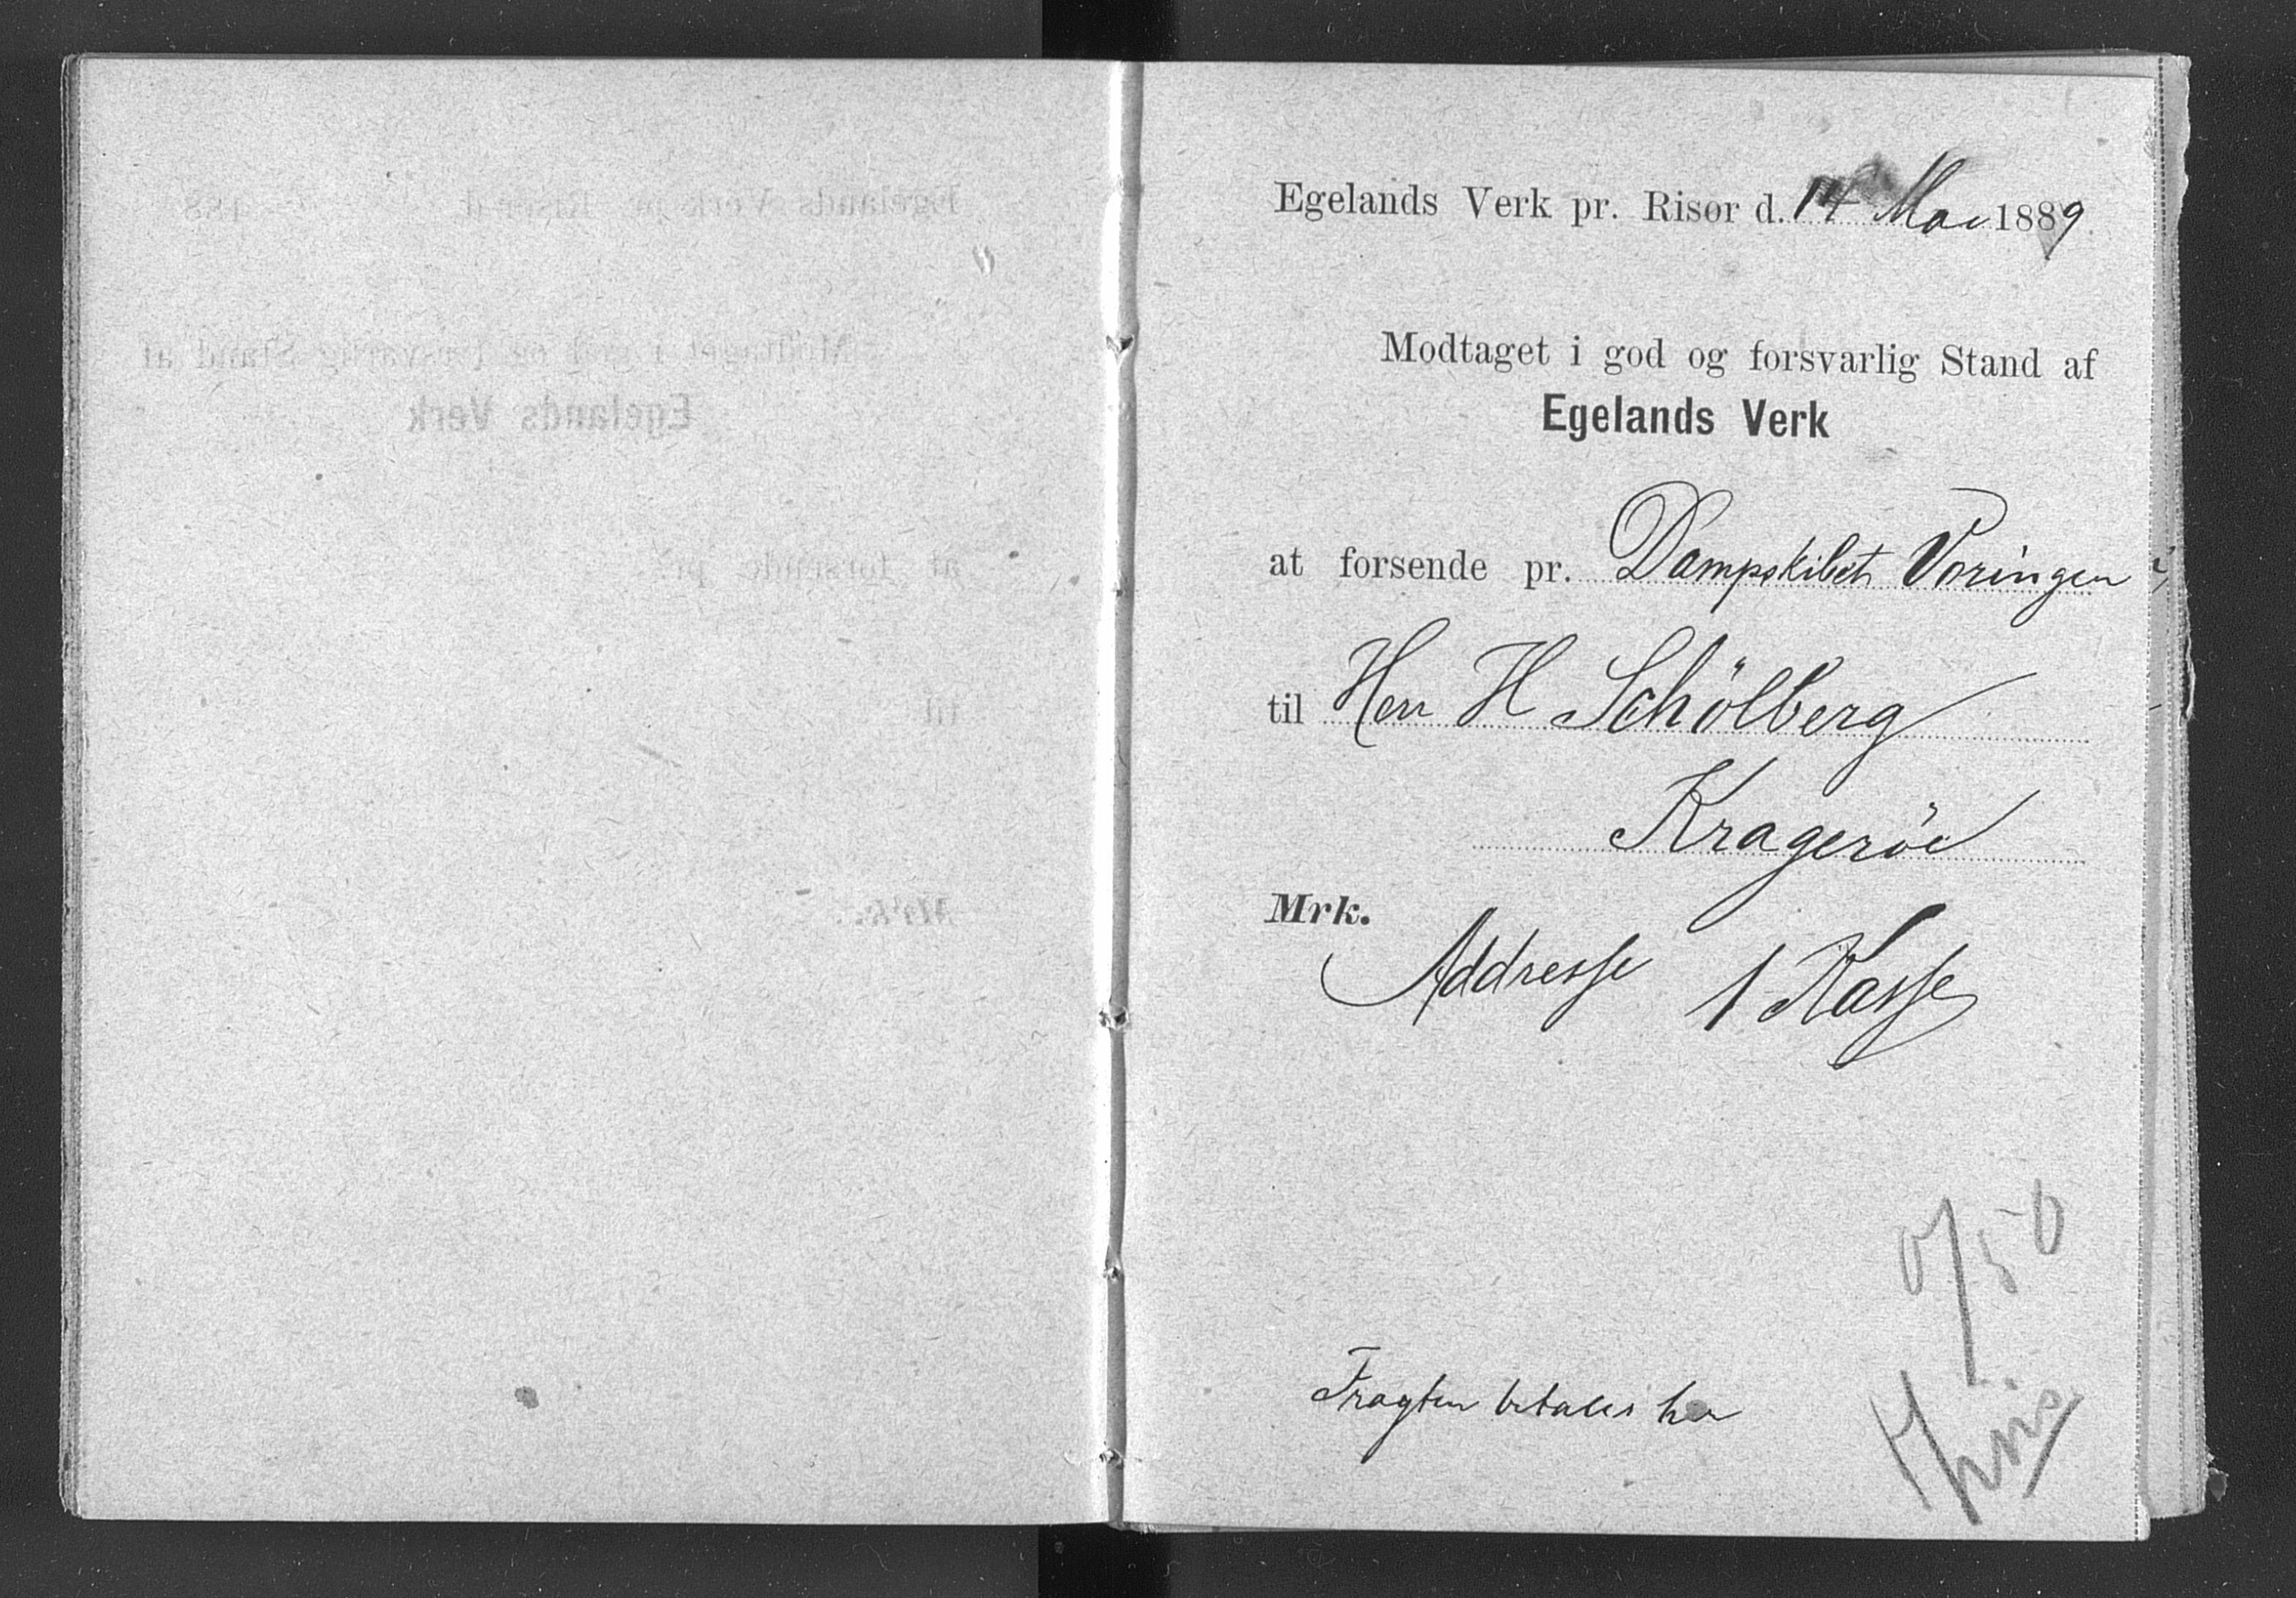 Egelands Verk pr. Risør d. 14 Mai 1889
Modtaget i god og forsvarlig Stand af
Egelands Verk
at forsende pr. Dampskibet Voringen
til Herr H Schölberg
Krageröe
Mrk.
Addresse 1 Kasse
0/50
Fragten betales her